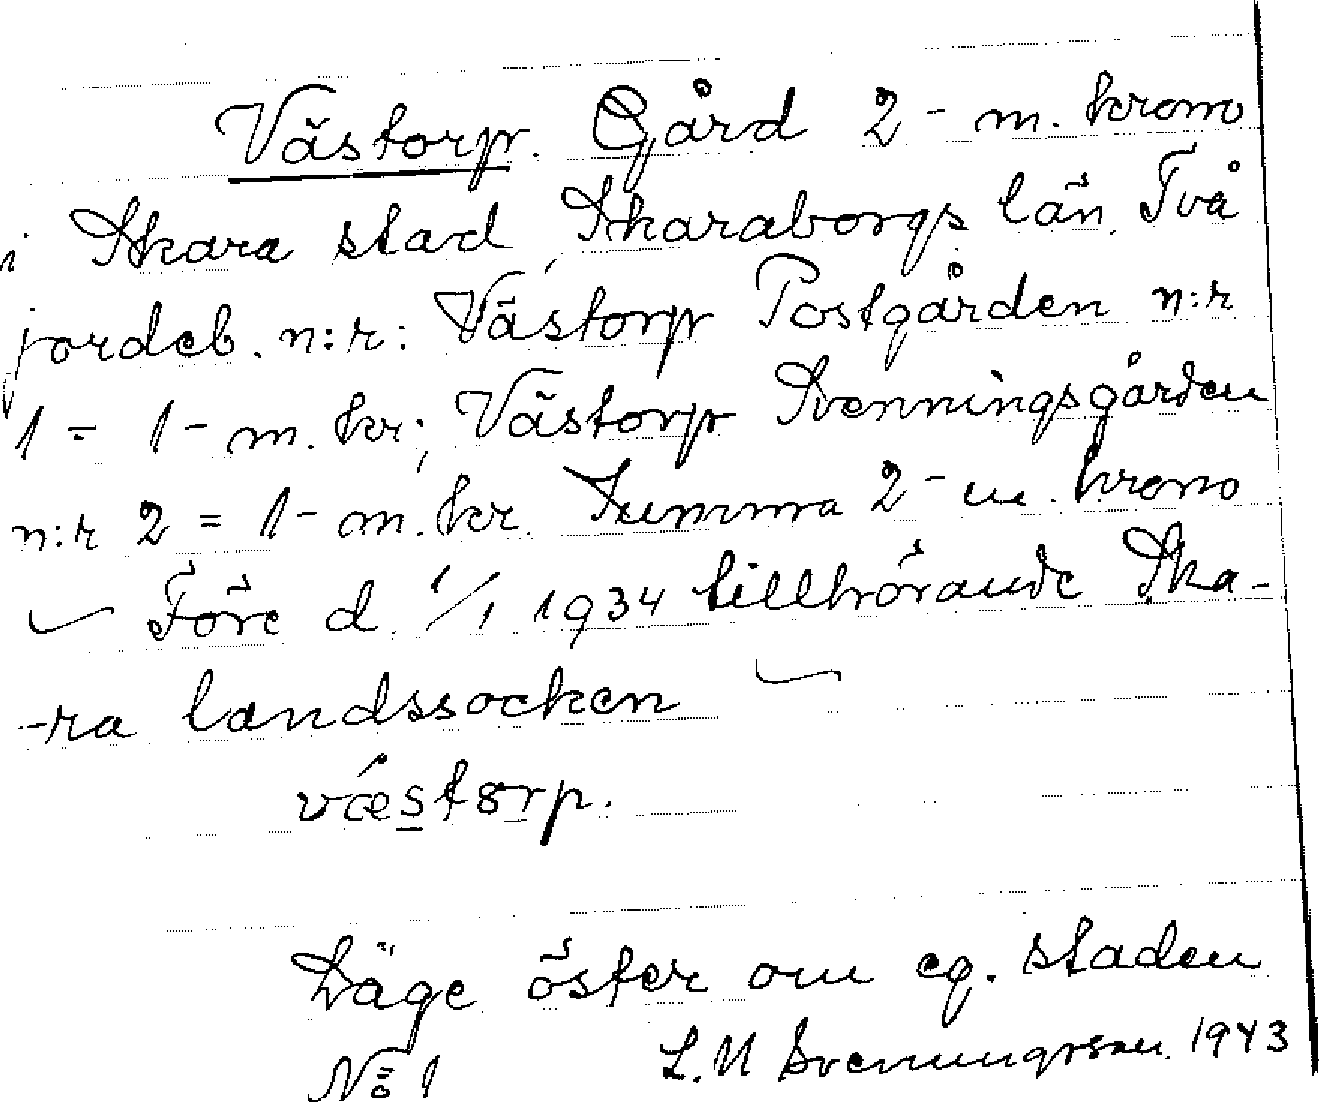 Västorp. Gård 2 - m. krono
i Skara stad, Skaraborgs län. Två
jordeb. n:r: Västorp Postgården n:r
1 = 1 - m. kr; Västorp Svenningsgården
n:r 2 = 1 - m. kr. Summa 2 - m. krono
Före d. 1/1 1934 tillhörande Ska-
-ra landssocken
væstørp.
Läge öster om eg. staden
No 1 L. N Svenungsson. 1943